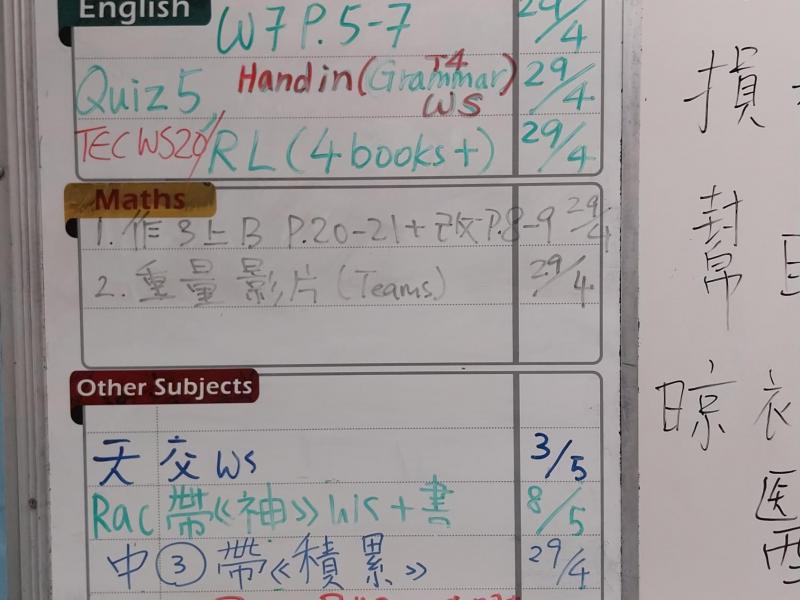 English
W7 P.5-7 29/4
Quiz 5, Hand in (T4 Grammar WS) 29/4
TEC WS20/ RL (4 books+) 29/4
Maths
1. 作3上B P.20-21+改P.8-9 29/4
2. 重量影片 (Teams) 29/4
Other Subjects
天交WS 3/5
Rac 帶《神》WS+書 8/5
中③帶《積累》 29/4
損
幫
晾衣
医